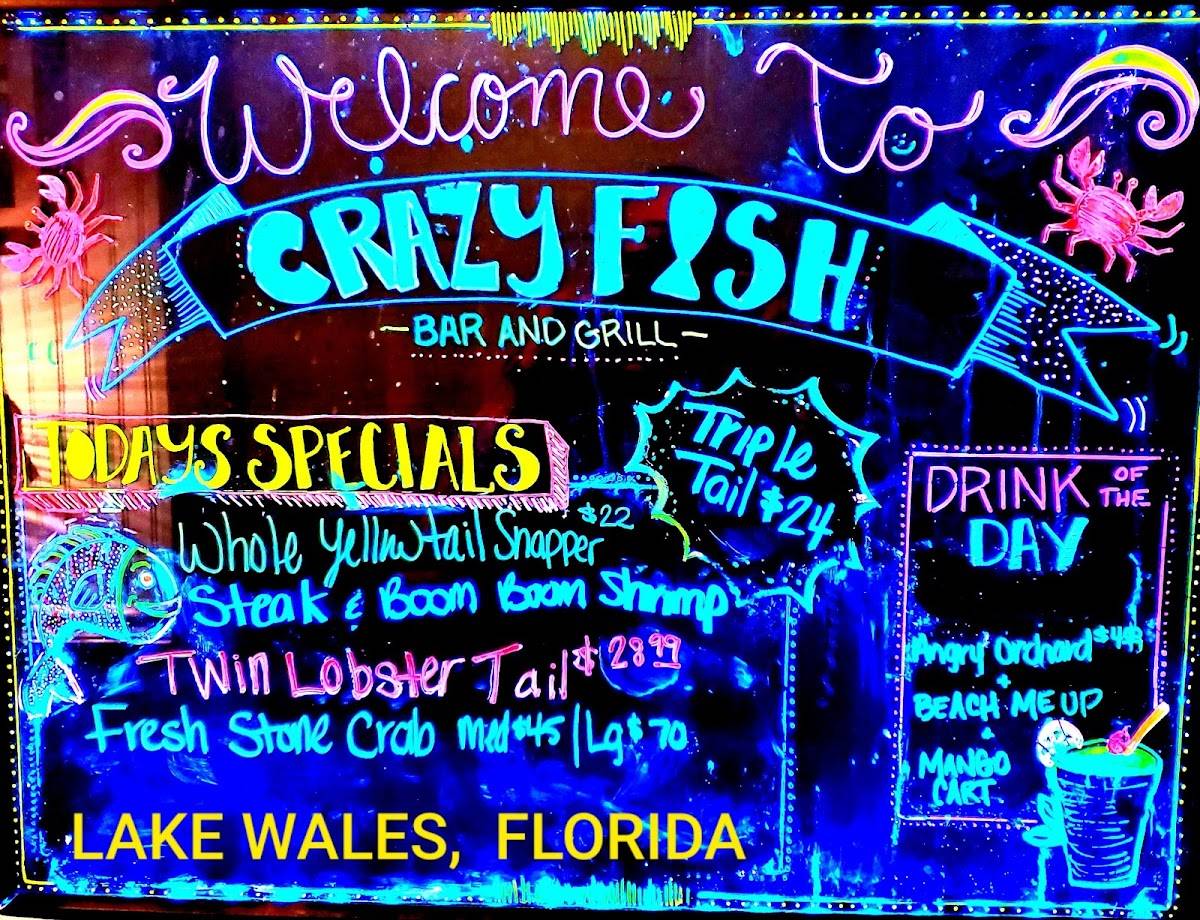 Welcome To
CRAZY FISH
-BAR AND GRILL-
TODAYS SPECIALS
Whole Yellowtail Snapper $22
Steak & Boom Boom Shrimp
Twin Lobster Tail $28.99
Fresh Stone Crab med $45 / Lg $70
Triple
Tail $24
DRINK OF THE
DAY
Angry Orchard
+
BEACH ME UP
MANGO
CART
LAKE WALES, FLORIDA